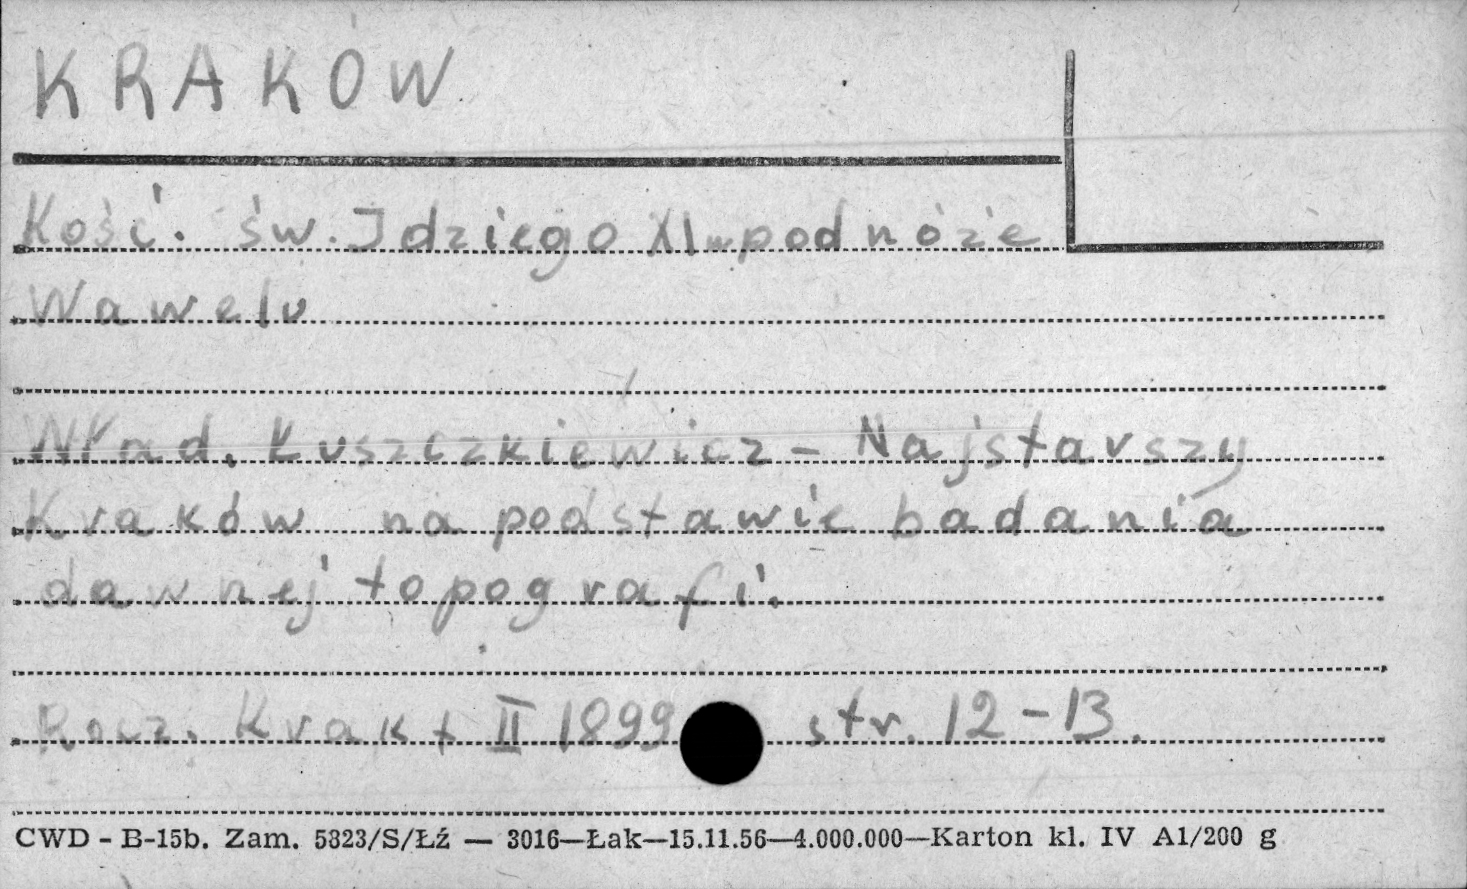 KRAKÓW
Kość. św. Idziego XI w podnóże
Wawelu
Wład. Łuszczkiewicz – Najstarszy
Kraków na podstawie badania
dawnej topografi.
Rocz. Krak t II 1899 str. 12-13.
CWD - B-15b. Zam. 5323/S/Łź — 3016—Łak—15.11.56—4.000.000—Karton kl. IV A1/200 g